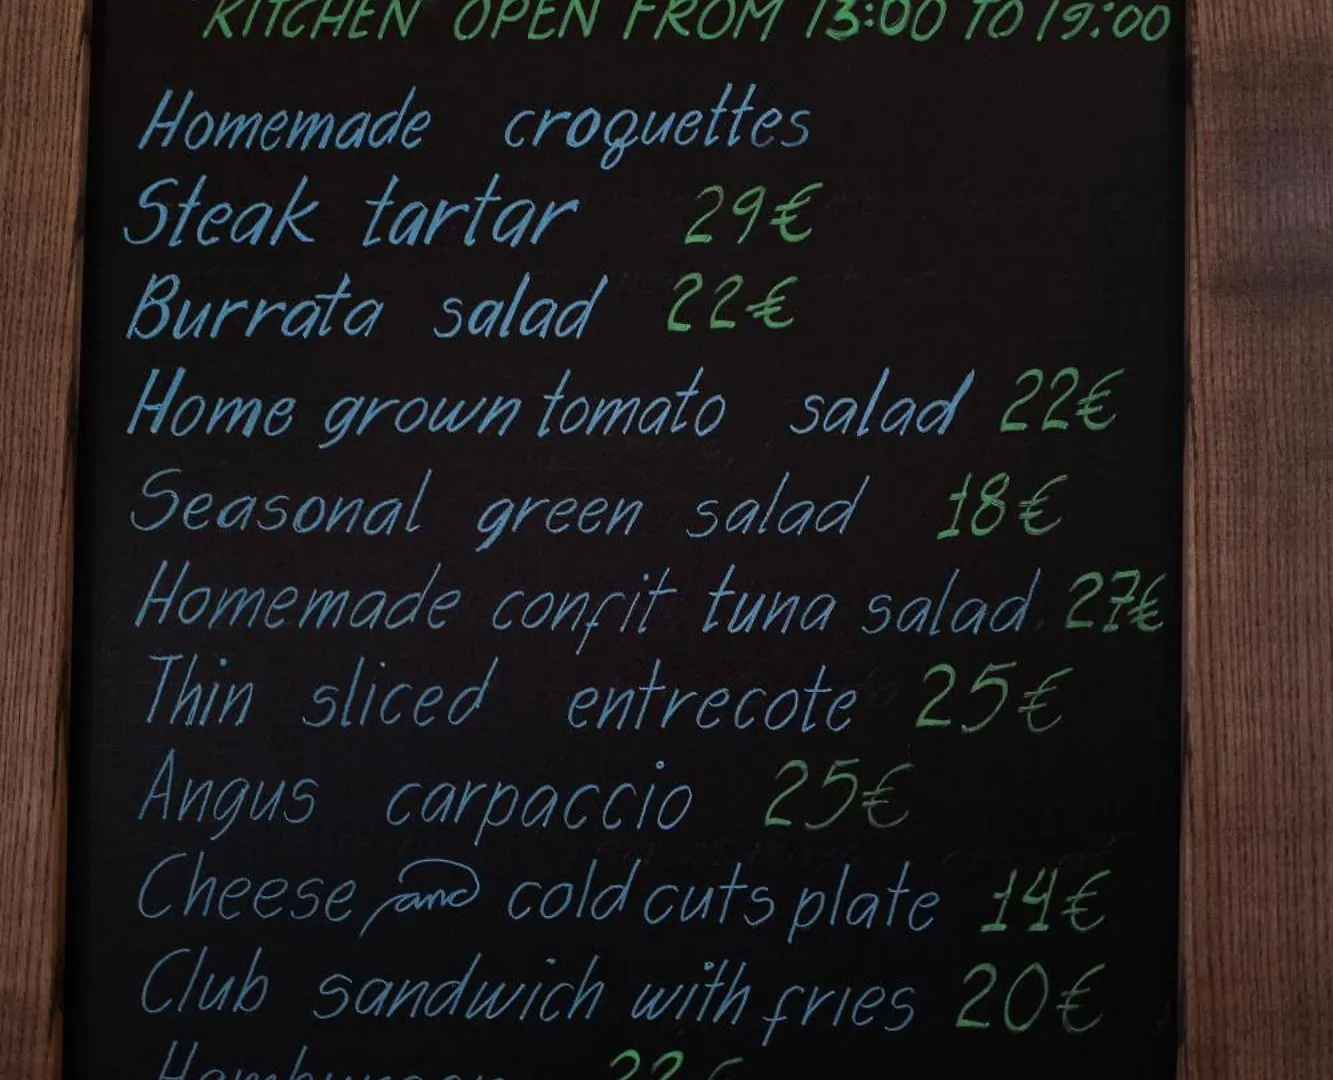 KITCHEN OPEN FROM 13:00 TO 19:00
Homemade croquettes
Steak tartar 29€
Burrata salad 22€
Home grown tomato salad 22€
Seasonal green salad 18€
Homemade confit tuna salad 27€
Thin sliced entrecote 25€
Angus carpaccio 25€
Cheese and cold cuts plate 14€
Club sandwich with fries 20€